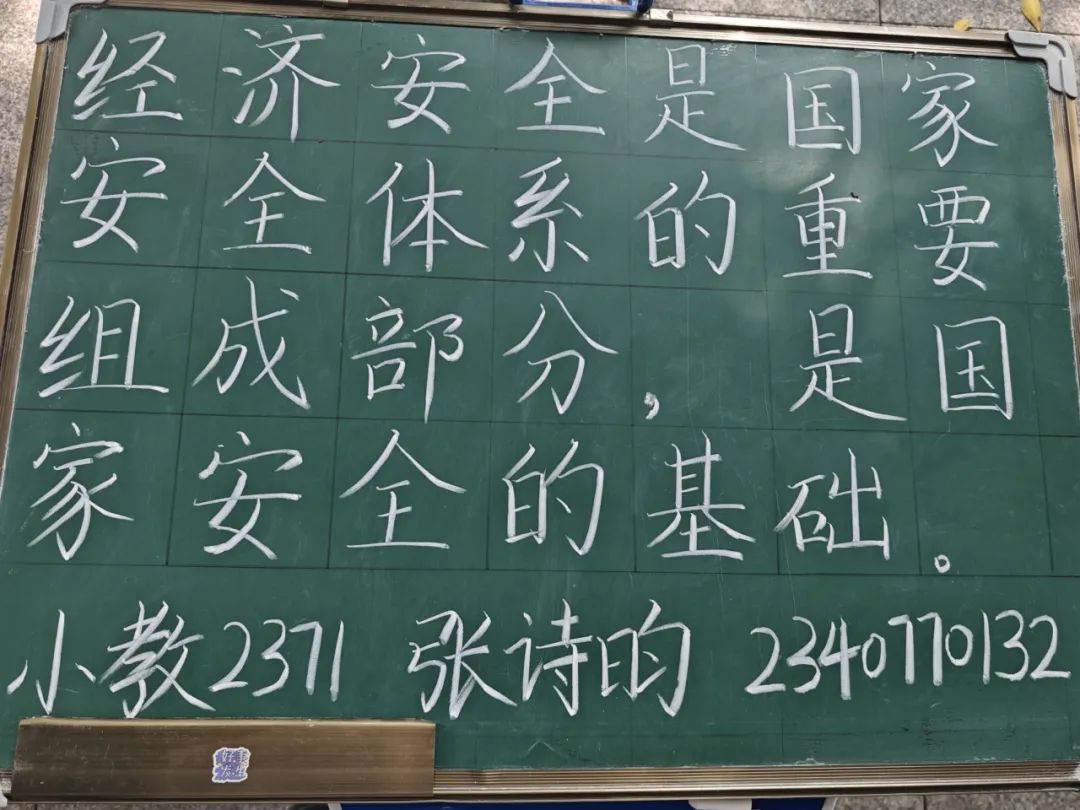 经济安全是国家
安全体系的重要
组成部分，是国
家安全的基础。
小教2371 张诗昀 2340770132
好事
发生